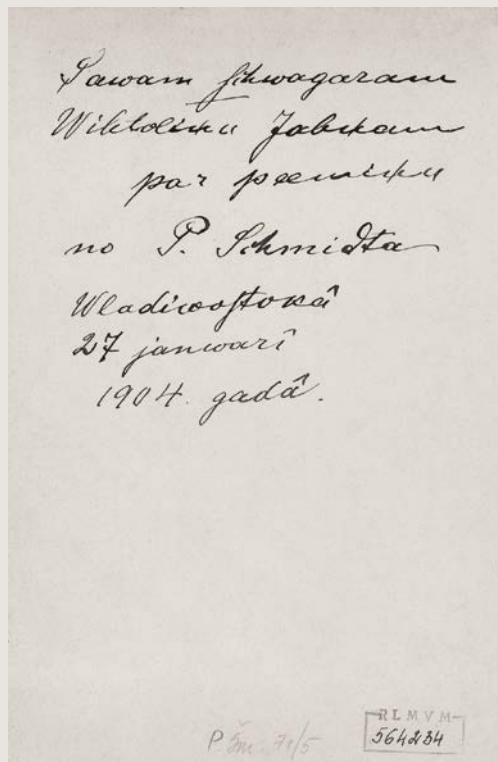 Sawam schwagaram
Wiktoliņu Jahnam
par peemiņu
no P. Schmidta
Wladiwostokā
27 janwarī
1904. gadâ.
P Šm. 71/5
RLMVM
564234